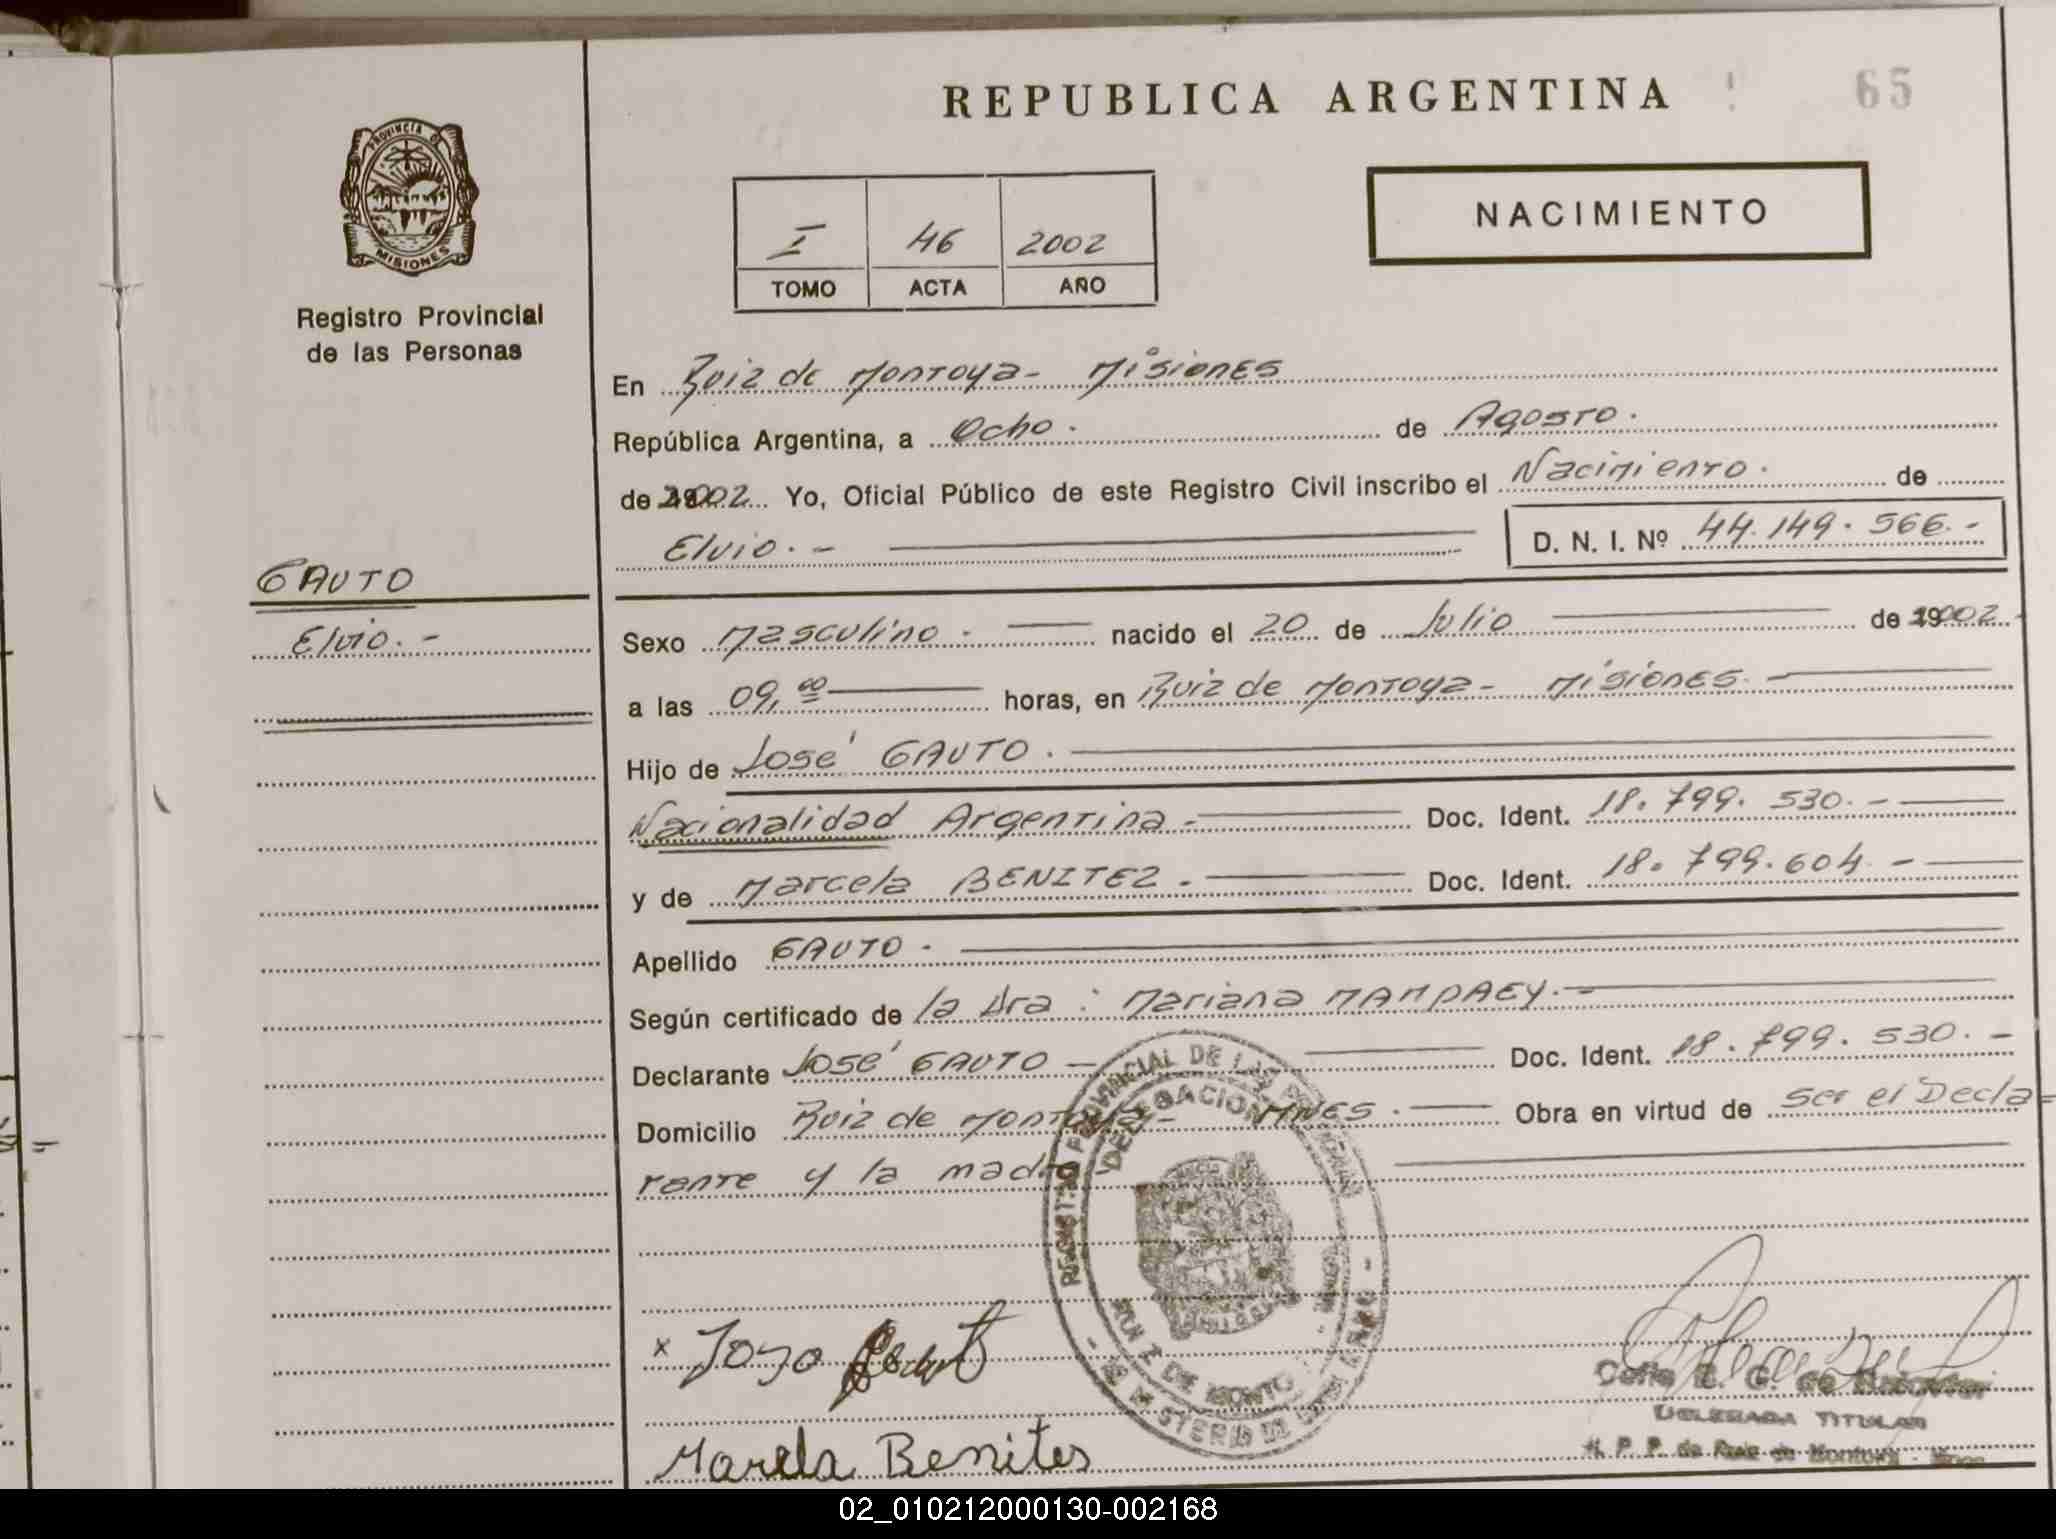 REPUBLICA ARGENTINA
65
PROVINCIA DE
MISIONES
Registro Provincial
de las Personas
I 46 2002
TOMO ACTA AÑO
NACIMIENTO
En Ruiz de Montoya - Misiones
República Argentina, a Ocho. de Agosto.
de 2002 Yo, Oficial Público de este Registro Civil inscribo el Nacimiento. de
Elvio. -
D. N. I. Nº 44.149.566.-
GAUTO
Elvio. -
Sexo Masculino. nacido el 20 de Julio de 2002.
a las 09,00 horas, en Ruiz de Montoya - Misiones.
Hijo de José GAUTO.
Nacionalidad Argentina - Doc. Ident. 18.799.530.-
y de Marcela BENITEZ. Doc. Ident. 18.799.604 -
Apellido GAUTO.
Según certificado de la Dra: Mariana MAMPAEY.-
Declarante José GAUTO - Doc. Ident. 18.799.530.-
Domicilio Ruiz de Montoya - MNES. Obra en virtud de ser el Decla=
rante y la madre
REGISTRO PROVINCIAL DE LAS PERSONAS
DELEGACION
RUIZ DE MONTOYA
x
Marcela Benites
DELEGADA TITULAR
R. P. P. de Ruiz de Montoya - Mnes
02_010212000130-002168